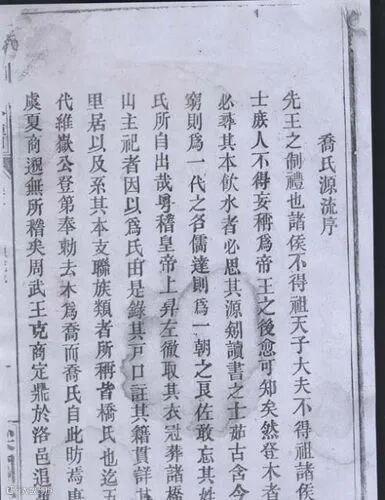 喬氏源流序
先王之制禮也諸侯不得祖天子大夫不得祖諸侯
士庶人不得妄稱為帝王之後愈可知矣然登木者
必尋其本飲水者必思其源矧讀書之士茹古含今
窮則為一代之名儒達則為一朝之良佐敢忘其姓
氏所自出哉粵稽皇帝上昇左徹取其衣冠葬諸橋
山主祀者因以為氏由是錄其戸口註其籍貫詳其
里居以及系其本支聯族類者所稱皆橋氏也迄五
代維嶽公登第奉勅去木為喬而喬氏自此昉焉唐
虞夏商邈無所稽矣周武王克商定鼎於洛邑追